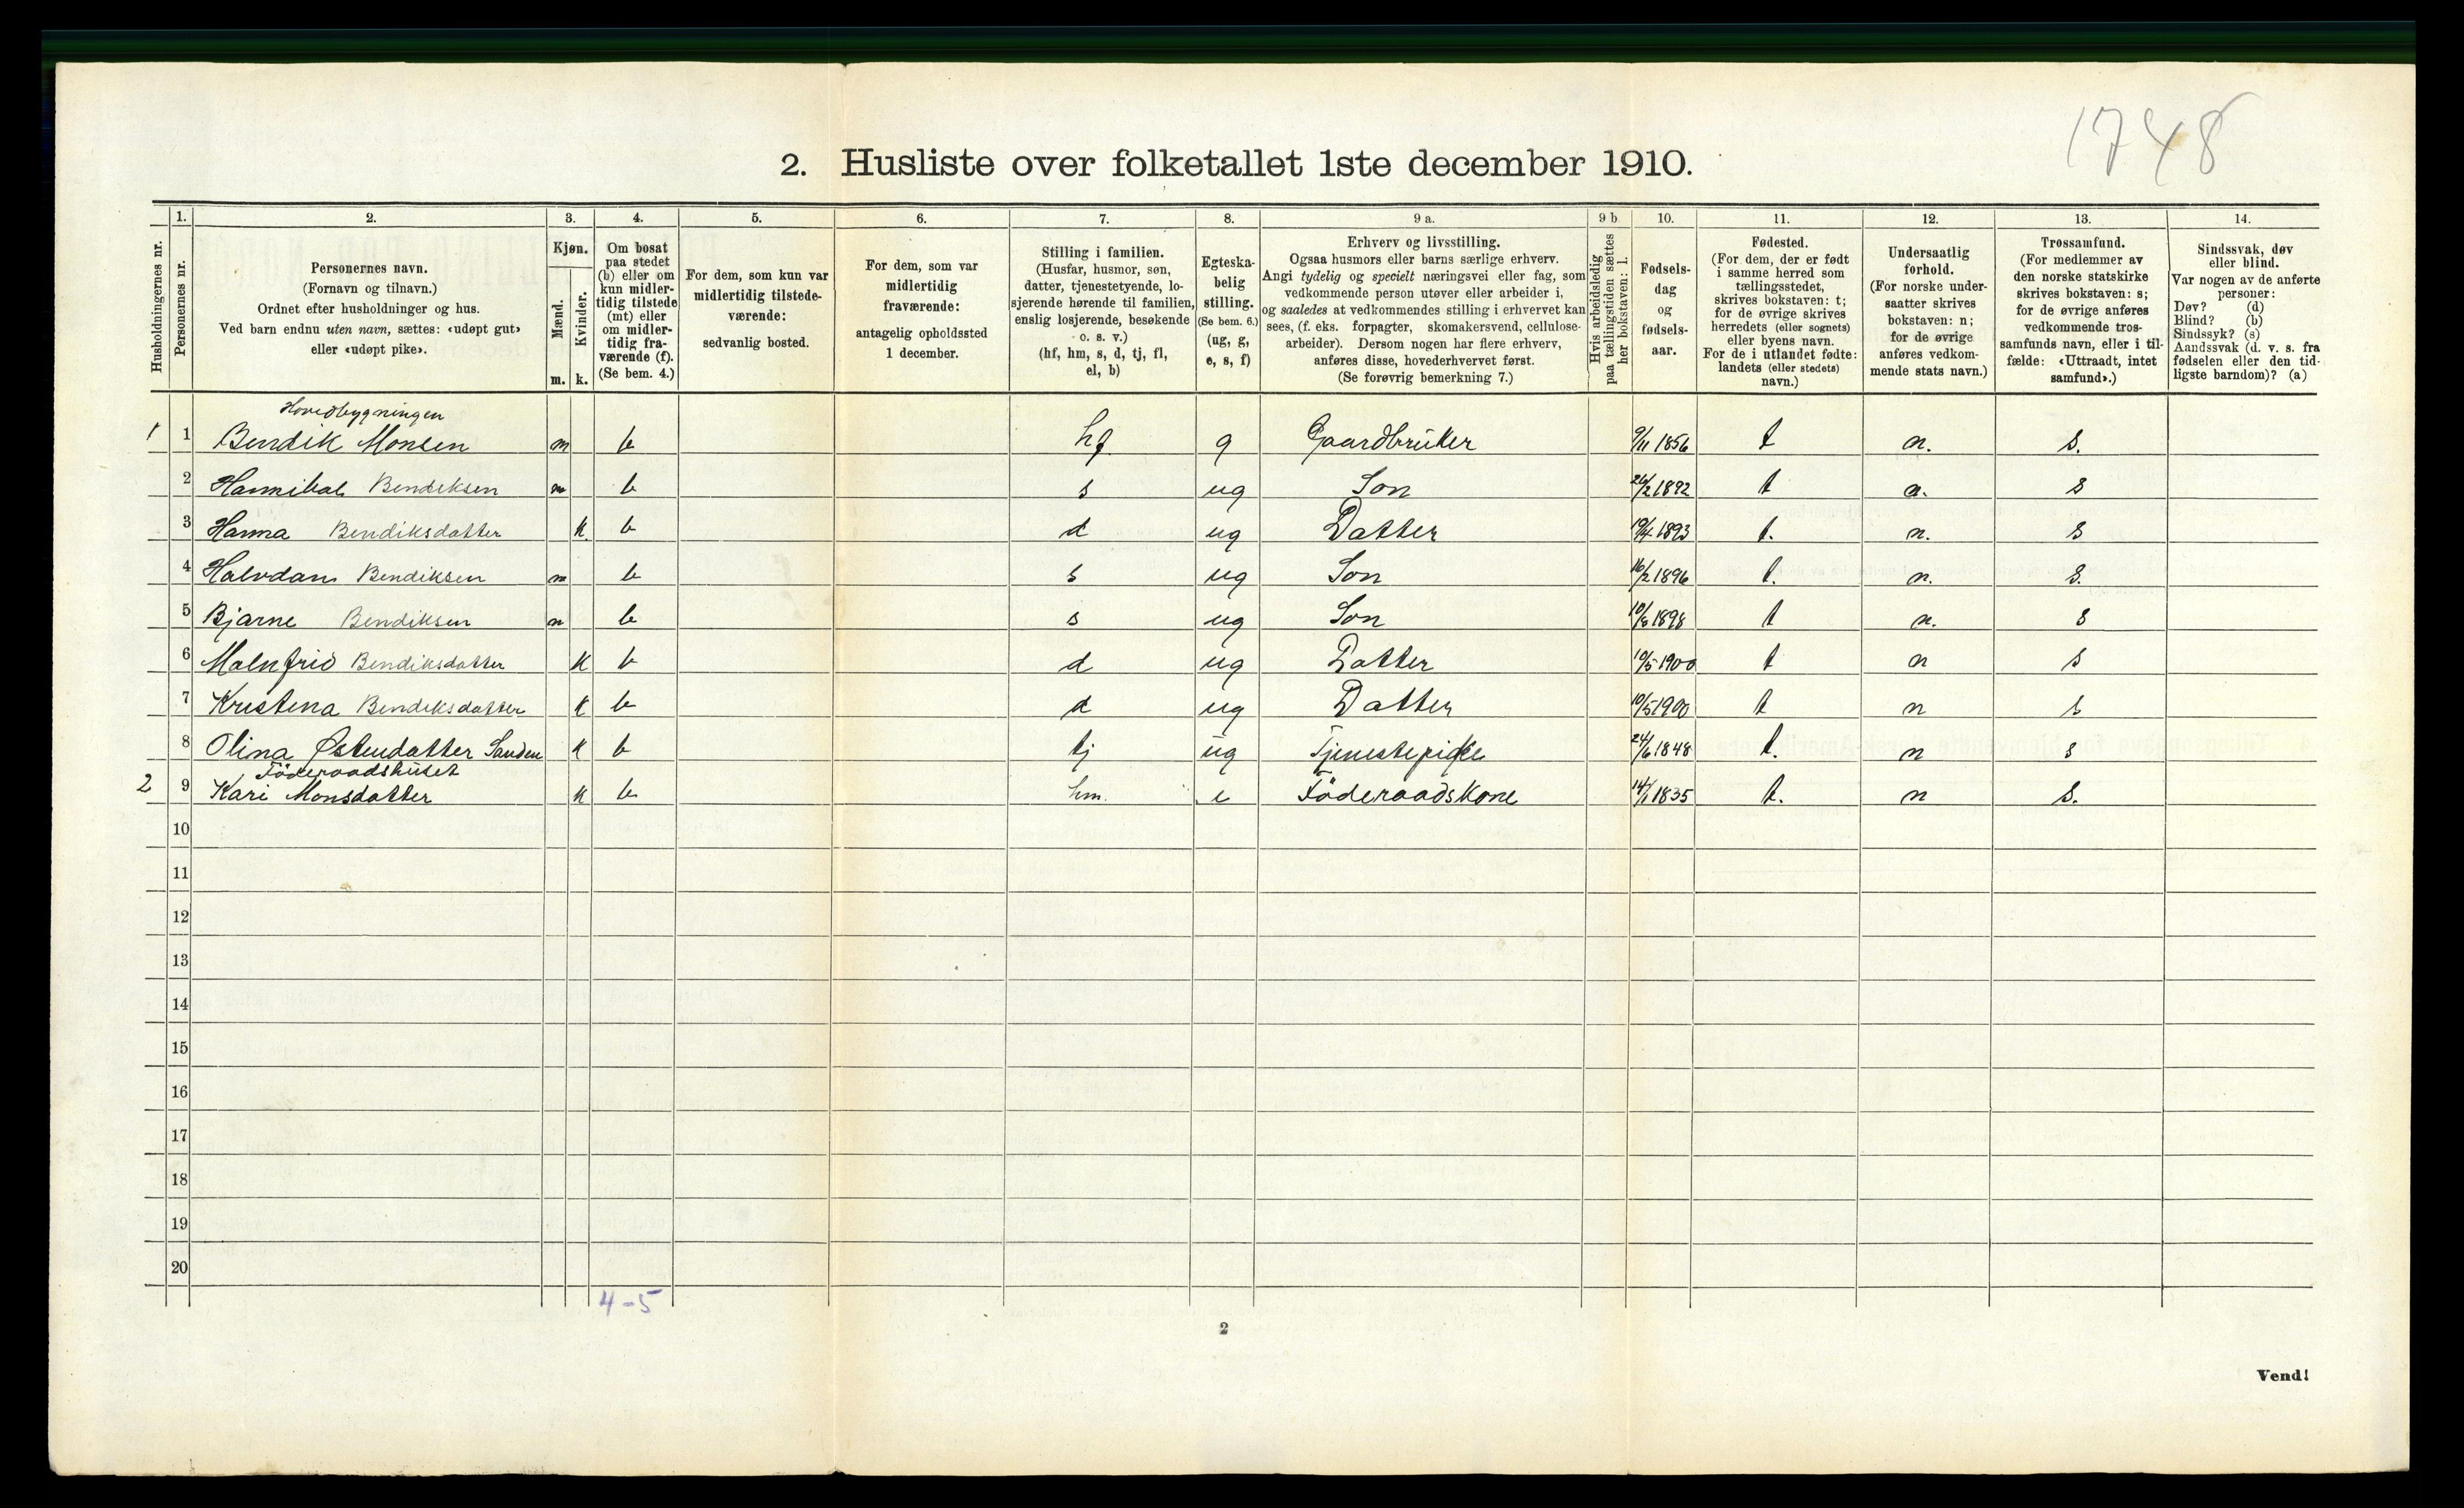 1748
2. Husliste over folketallet 1ste december 1910.
1. 2. 3. 4. 5. 6. 7. 8. 9 a. 9 b 10. 11. 12. 13. 14.
Husholdningernes nr.
Personernes nr.
Personernes navn.
(Fornavn og tilnavn.)
Ordnet efter husholdninger og hus.
Ved barn endnu uten navn, sættes: «udøpt gut»
eller «udøpt pike».
Kjøn.
Mænd.
Kvinder.
m. k.
Om bosat
paa stedet
(b) eller om
kun midler-
tidig tilstede
(mt) eller
om midler-
tidig fra-
værende (f).
(Se bem. 4.)
For dem, som kun var
midlertidig tilstede-
værende:
sedvanlig bosted.
For dem, som var
midlertidig
fraværende:
antagelig opholdssted
1 december.
Stilling i familien.
(Husfar, husmor, søn,
datter, tjenestetyende, lo-
sjerende hørende til familien,
enslig losjerende, besøkende
o. s. v.)
(hf, hm, s, d, tj, fl,
el, b)
Egteska-
belig
stilling.
(Se bem. 6.)
(ug, g,
e, s, f)
Erhverv og livsstilling.
Ogsaa husmors eller barns særlige erhverv.
Angi tydelig og specielt næringsvei eller fag, som
vedkommende person utøver eller arbeider i,
og saaledes at vedkommendes stilling i erhvervet kan
sees, (f. eks. forpagter, skomakersvend, cellulose-
arbeider). Dersom nogen har flere erhverv,
anføres disse, hovederhvervet først.
(Se forøvrig bemerkning 7.)
Hvis arbeidsledig
paa tællingstiden sættes
her bokstaven: l.
Fødsels-
dag
og
fødsels-
aar.
Fødested.
(For dem, der er født
i samme herred som
tællingsstedet,
skrives bokstaven: t;
for de øvrige skrives
herredets (eller sognets)
eller byens navn.
For de i utlandet fødte:
landets (eller stedets)
navn.)
Undersaatlig
forhold.
(For norske under-
saatter skrives
bokstaven: n;
for de øvrige
anføres vedkom-
mende stats navn.)
Trossamfund.
(For medlemmer av
den norske statskirke
skrives bokstaven: s;
for de øvrige anføres
vedkommende tros-
samfunds navn, eller i til-
fælde: «Uttraadt, intet
samfund».)
Sindssvak, døv
eller blind.
Var nogen av de anførte
personer:
Døv? (d)
Blind? (b)
Sindssyk? (s)
Aandssvak (d. v. s. fra
fødselen eller den tid-
ligste barndom)? (a)
Hovedbygningen
1 1 Bendik Monsen m b hf g Gaardbruker 9/11 1856 t n. s.
2 Hannibal Bendiksen m b s ug Son 26/2 1892 t n. s
3 Hanna Bendiksdatter k b d ug Datter 19/4 1893 t. n. s
4 Halvdan Bendiksen m b s ug Son 16/2 1896 t. n. s.
5 Bjarne Bendiksen m b s ug Son 1898 t n. s
6 Malnfrid Bendiksdatter k b d ug Datter 10/5 1900 t n s
7 Kristina Bendiksdatter k b d ug Datter 10/5 1900 t n s
8 Olina Østendatter Sanden k b tj ug Tjenestepige 24/6 1848 t. n s
Föderaadshuset
2 9 Kari Monsdatter k b hm. e Föderaadskone 14/1 1835 t. n s.
10
11
12
13
14
15
16
17
18
19
20
4-5
2
Vend!